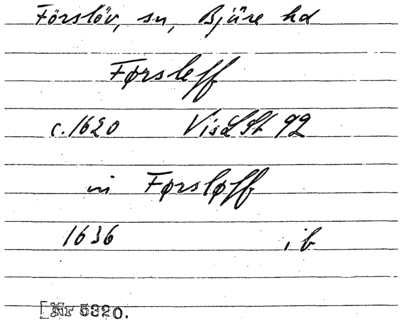 Förslöv, sn, Bjäre hd
Førsleff
c. 1620 VisLSt 92
in Førsløff
1636 ib
[Nr 5320.